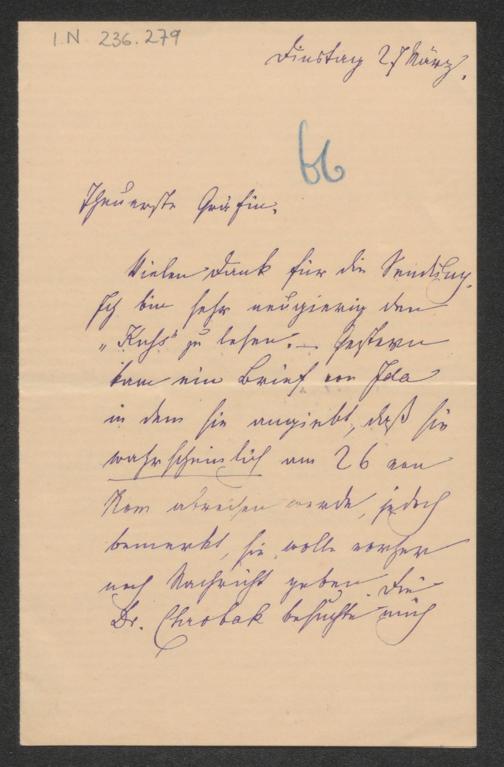 I.N. 236.279
Dinstag 27 März.
66
Theuerste Gräfin.
Vielen Dank für die Sendung.
Ich bin sehr neugierig den
„ " zu lesen. — Gestern
kam ein Brief von Ida
in dem sie angiebt, daß sie
wahrscheinlich am 26 von
Rom abreisen werde, jedoch
bemerkt, sie wolle vorher
noch Nachricht geben. Die
Dr. Chrobak besuchte mich